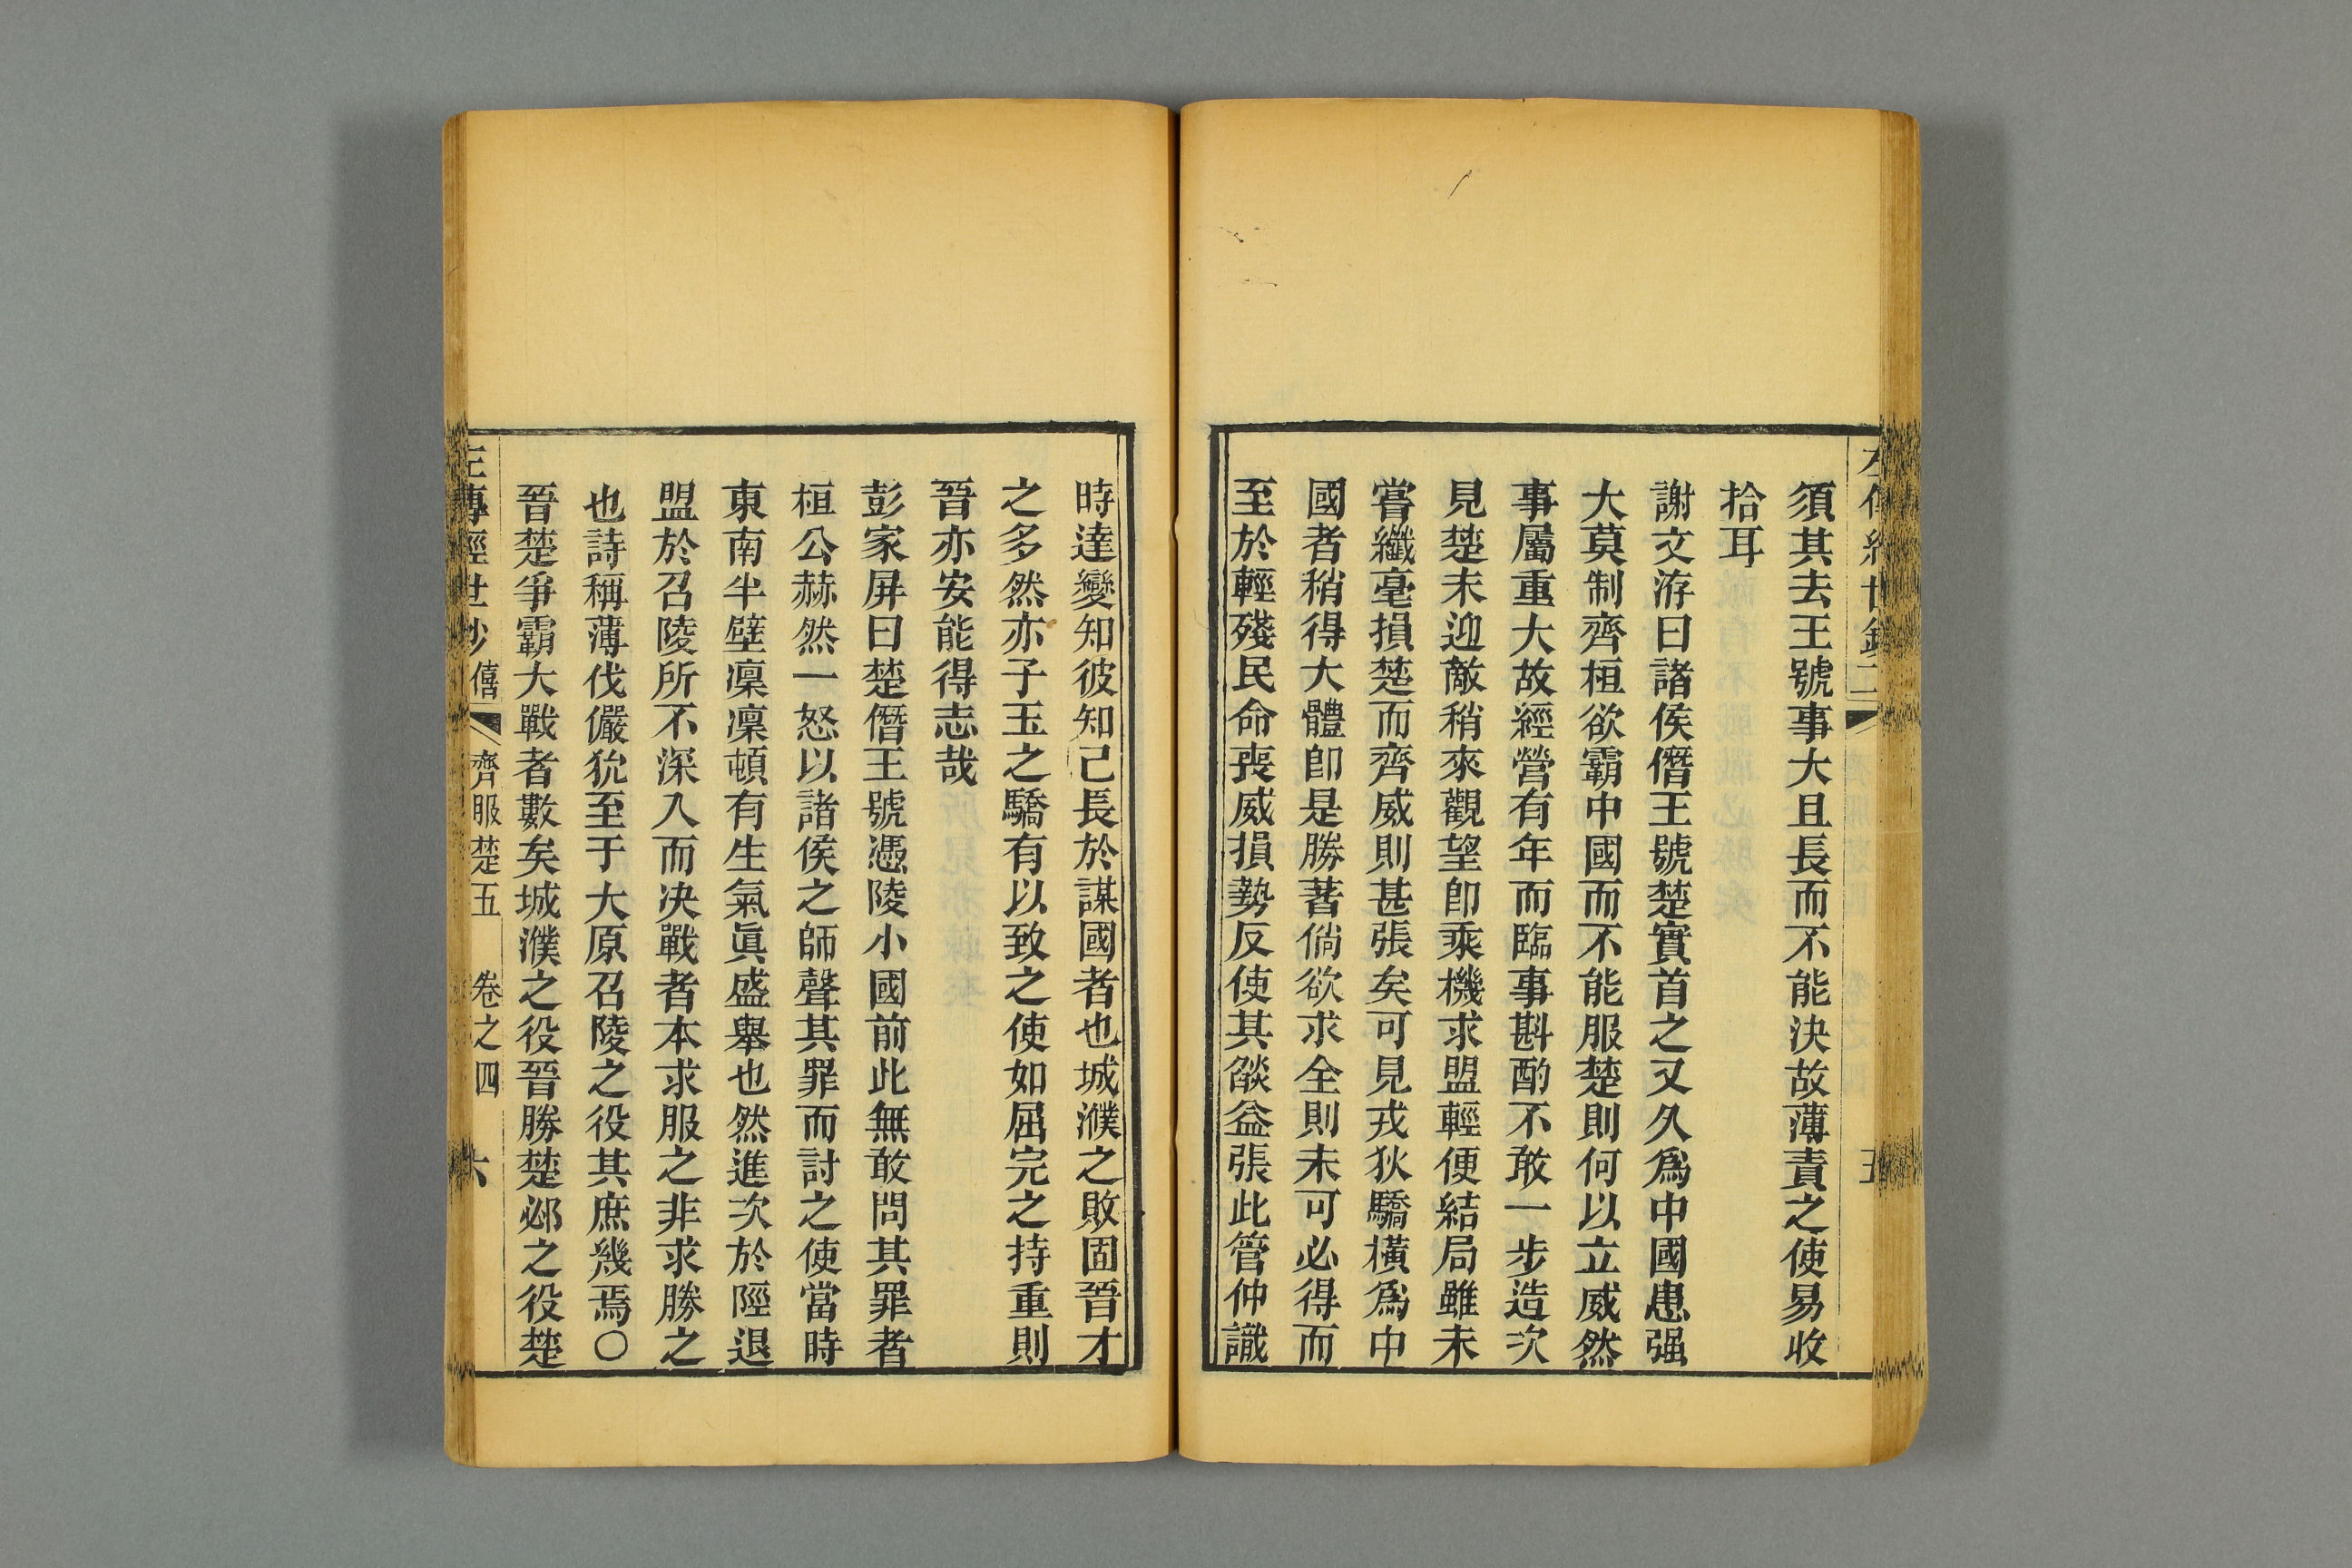 須其去王號事大且長而不能決故薄責之使易收
拾耳
謝文洊曰諸侯僭王號楚實首之又久爲中國患强
大莫制齊桓欲霸中國而不能服楚則何以立威然
事屬重大故經營有年而臨事斟酌不敢一步造次
見楚未迎敵稍來觀望卽乘機求盟輕便結局雖未
嘗纖毫損楚而齊威則甚張矣可見戎狄驕橫爲中
國者稍得大體卽是勝著倘欲求全則未可必得而
至於輕殘民命喪威損勢反使其燄益張此管仲識
時達變知彼知己長於謀國者也城濮之敗固晉才
之多然亦子玉之驕有以致之使如屈完之持重則
晉亦安能得志哉
彭家屏曰楚僭王號憑陵小國前此無敢問其罪者
桓公赫然一怒以諸侯之師聲其罪而討之使當時
東南半壁凜凜頓有生氣眞盛舉也然進次於陘退
盟於召陵所不深入而決戰者本求服之非求勝之
也詩稱薄伐儼狁至于大原召陵之役其庶幾焉〇
晉楚爭霸大戰者數矣城濮之役晉勝楚邲之役楚
左傳經世鈔 僖 齊服楚五 卷之四 六